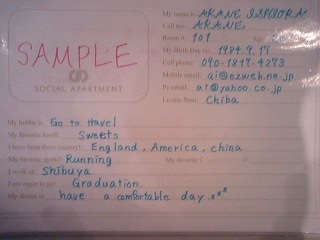 SAMPLE
SOCIAL APARTMENT
My name is AKANE
Call me AKANE
Room # 101
My Birth Day is 1984.9.17
Cell phone 090-1817-4273
Mobile email ai@ezweb.ne.jp
Pc email ai@yahoo.co.jp
I came from Chiba
My hobby is Go to travel
My favorite food? Sweets
I have been these country! England, America, china
My favorite sports? Running My favorite
I work at Shibuya
I am eager to get Graduation.
My dream is have a comfortable day...